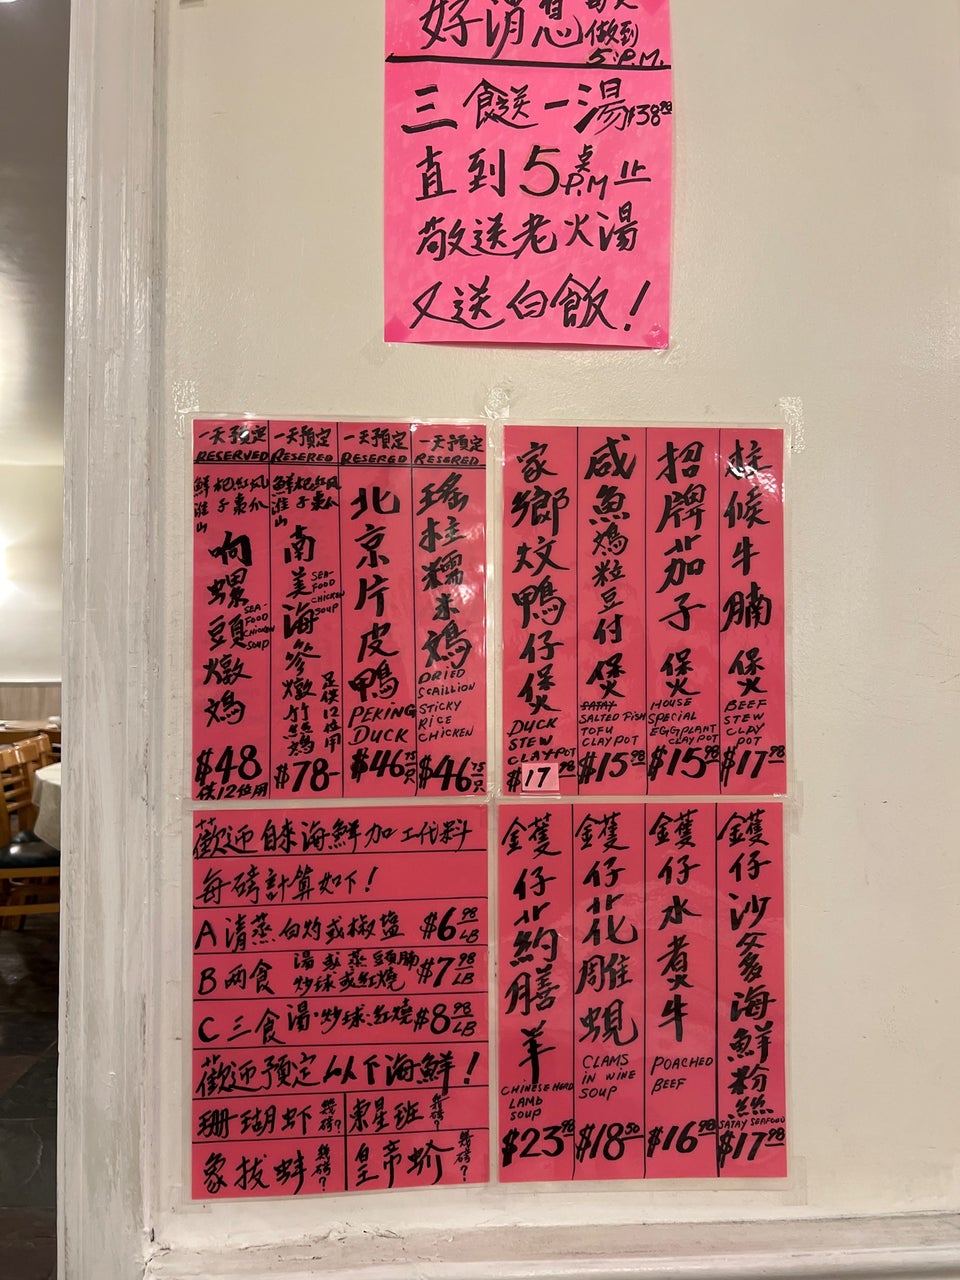 好消息 每天
做到
5:P.M.
三餸送一湯 $38
直到5點 P.M 止
敬送老火湯
又送白飯！
一天予定
RESERVED
鮮淮山 杞子 紅棗 凤爪
响螺頭燉鸡
SEA-FOOD CHICKEN SOUP
$48
供12位用
一天予定
RESERED
鮮淮山 杞子 紅棗 凤爪
南美海参燉竹絲鸡
SEA-FOOD CHICKEN SOUP
足供12位用
$78-
一天予定
RESERED
北京片皮鴨
PEKING
DUCK
$46.75只
一天予定
RESERED
瑤柱糯米鸡
DRIED
SCAILLION
STICKY
RICE
CHICKEN
$46.75只
家鄉炆鴨仔煲
DUCK
STEW
CLAYPOT
$17.98
咸魚鸡粒豆付煲
SALTED FISH
TOFU
CLAYPOT
$15.98
招牌茄子煲
HOUSE
SPECIAL
EGGPLANT
CLAYPOT
$15.98
柱候牛腩煲
BEEF
STEW
CLAY
POT
$17.98
歡迎自來海鮮加工代料
每磅計算如下！
A 清蒸 白灼或椒盐 $6.98 LB
B 两食 湯或蒸豆頭腩 炒球或紅燒 $7.98 LB
C 三食 湯·炒球·紅燒 $8.98 LB
歡迎预定以下海鮮！
珊瑚虾 幾磅？
東星班 幾磅？
象拔蚌 幾磅？
皇帝蚧 幾磅？
金鑊仔艹約膳羊
CHINESE HERB
LAMB
SOUP
$23.98
金鑊仔花雕蜆
CLAMS
IN WINE
SOUP
$18.50
金鑊仔水煮牛
POACHED
BEEF
$16.98
金鑊仔沙爹海鮮粉絲
SATAY SEAFOOD
$17.98